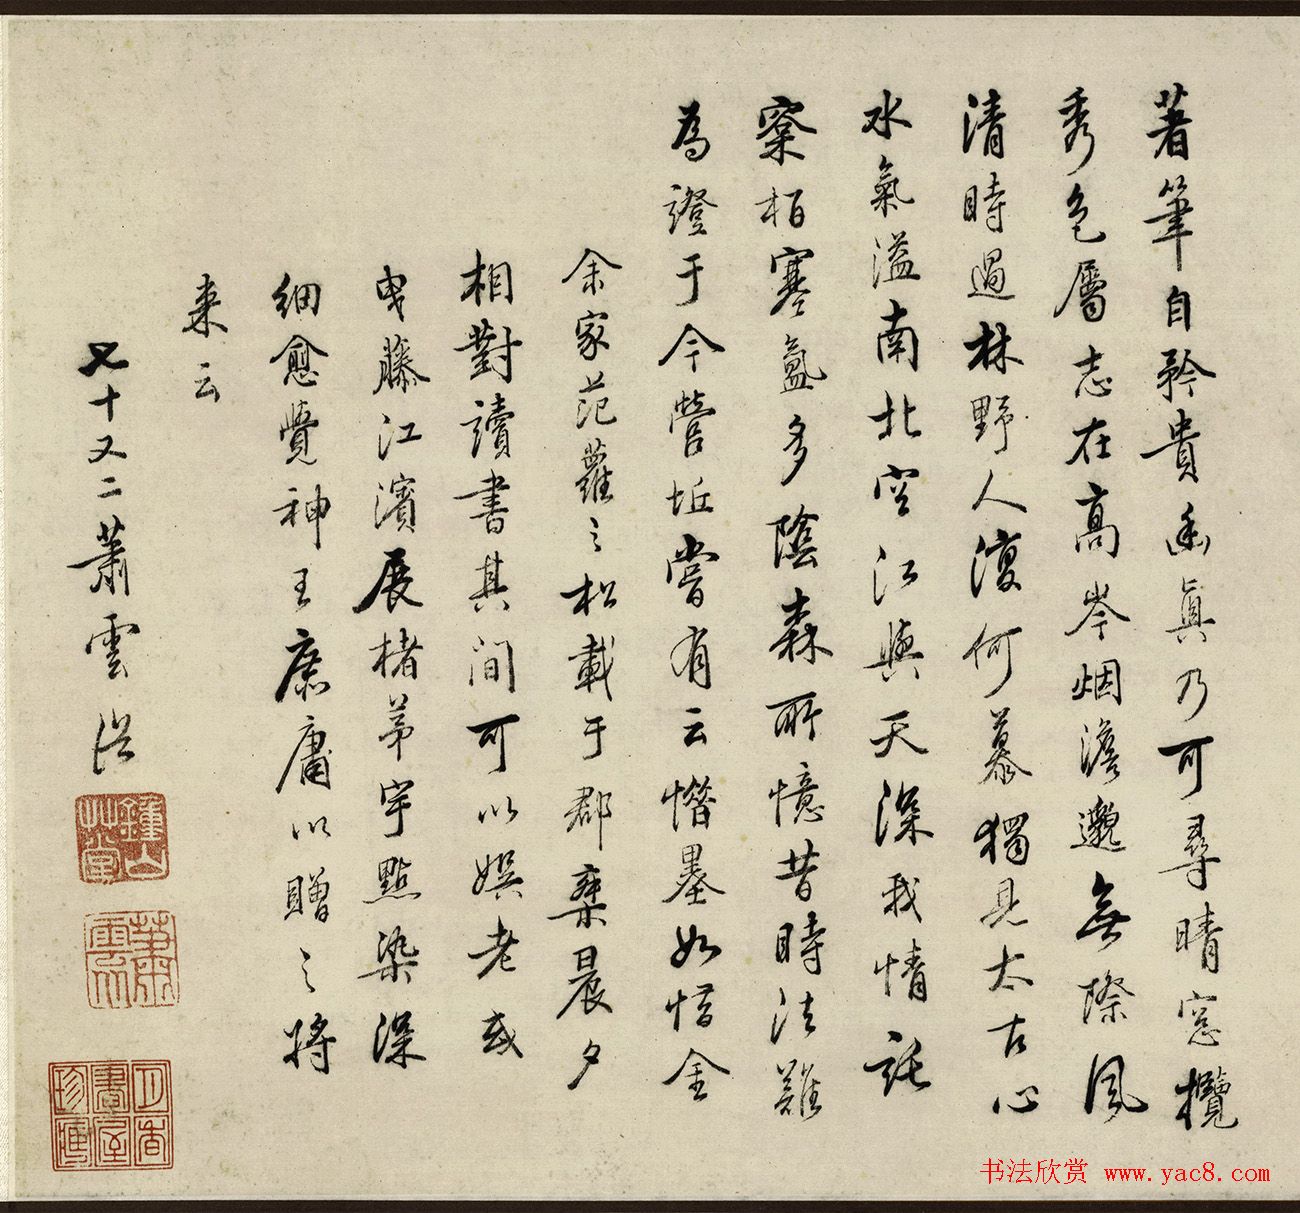 著筆自矜貴幽真乃可尋晴窓攬
秀色屬志在高岑烟澹邈無際風
清時過林野人復何慕獨見太古心
水氣溢南北空江與天深我情託
栢寒多陰森所憶昔時法難
為證于今營坵嘗有云惜墨如惜金
余家范蘿之松載于郡乘晨夕
相對讀書其間可以娛老或
曳藤江濱展楮茅宇點染深
細愈覺神王庸以贈之將
来云
七十又二蕭雲從
蕭雲從
书法欣赏 www.yac8.com